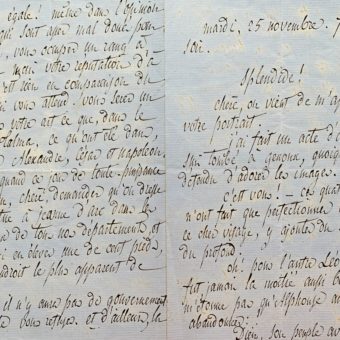 égale! même dans l'opinion
qui sont assez mal doués pour
, vous occuper un rang à
mais votre réputation d'à
rien en comparaison de
qui vous attend. vous serez un
votre art ce que, dans le
ont été dans,
Alexandre, César et napoléon.
quand ce jour de toute-puissance
, chère, demander qu'on érige
à jeanne d'arc dans la
de tous nos départements, et
en élève une de cent pieds,
endroit le plus apparent de
il n'y aura pas de gouvernement
bon refuge. et d'ailleurs, la
mardi, 25 novembre. 7
soir.
Splendide!
chère, on vient de m'ap
votre portrait.
j'ai fait un acte d'
tombé à genoux, quoiqu
défendu d'adorer les images.
c'est vous! — ces quat
n'ont fait que perfectionner
ce cher visage, y ajouter du
du profond.
oh! pour l'autre Léo
fut jamais la moitié aussi be
m'étonne pas qu'Alphonse au
abandonné!
Dieu, son peuple av